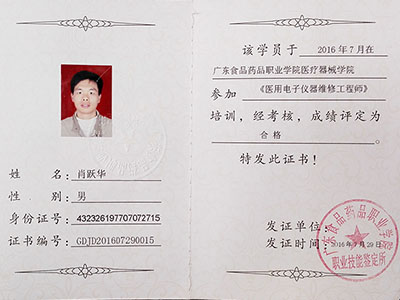 姓 名: 肖跃华
性 别: 男
身份证号: 432326197707072715
证书编号: GDJD201607290015
该学员于 2016年7月在
广东食品药品职业学院医疗器械学院
参加 《医用电子仪器维修工程师》
培训,经考核,成绩评定为
合格 。
特发此证书!
发证单位:
发证时间: 2016年7月29日
广东食品药品职业学院
职业技能鉴定所